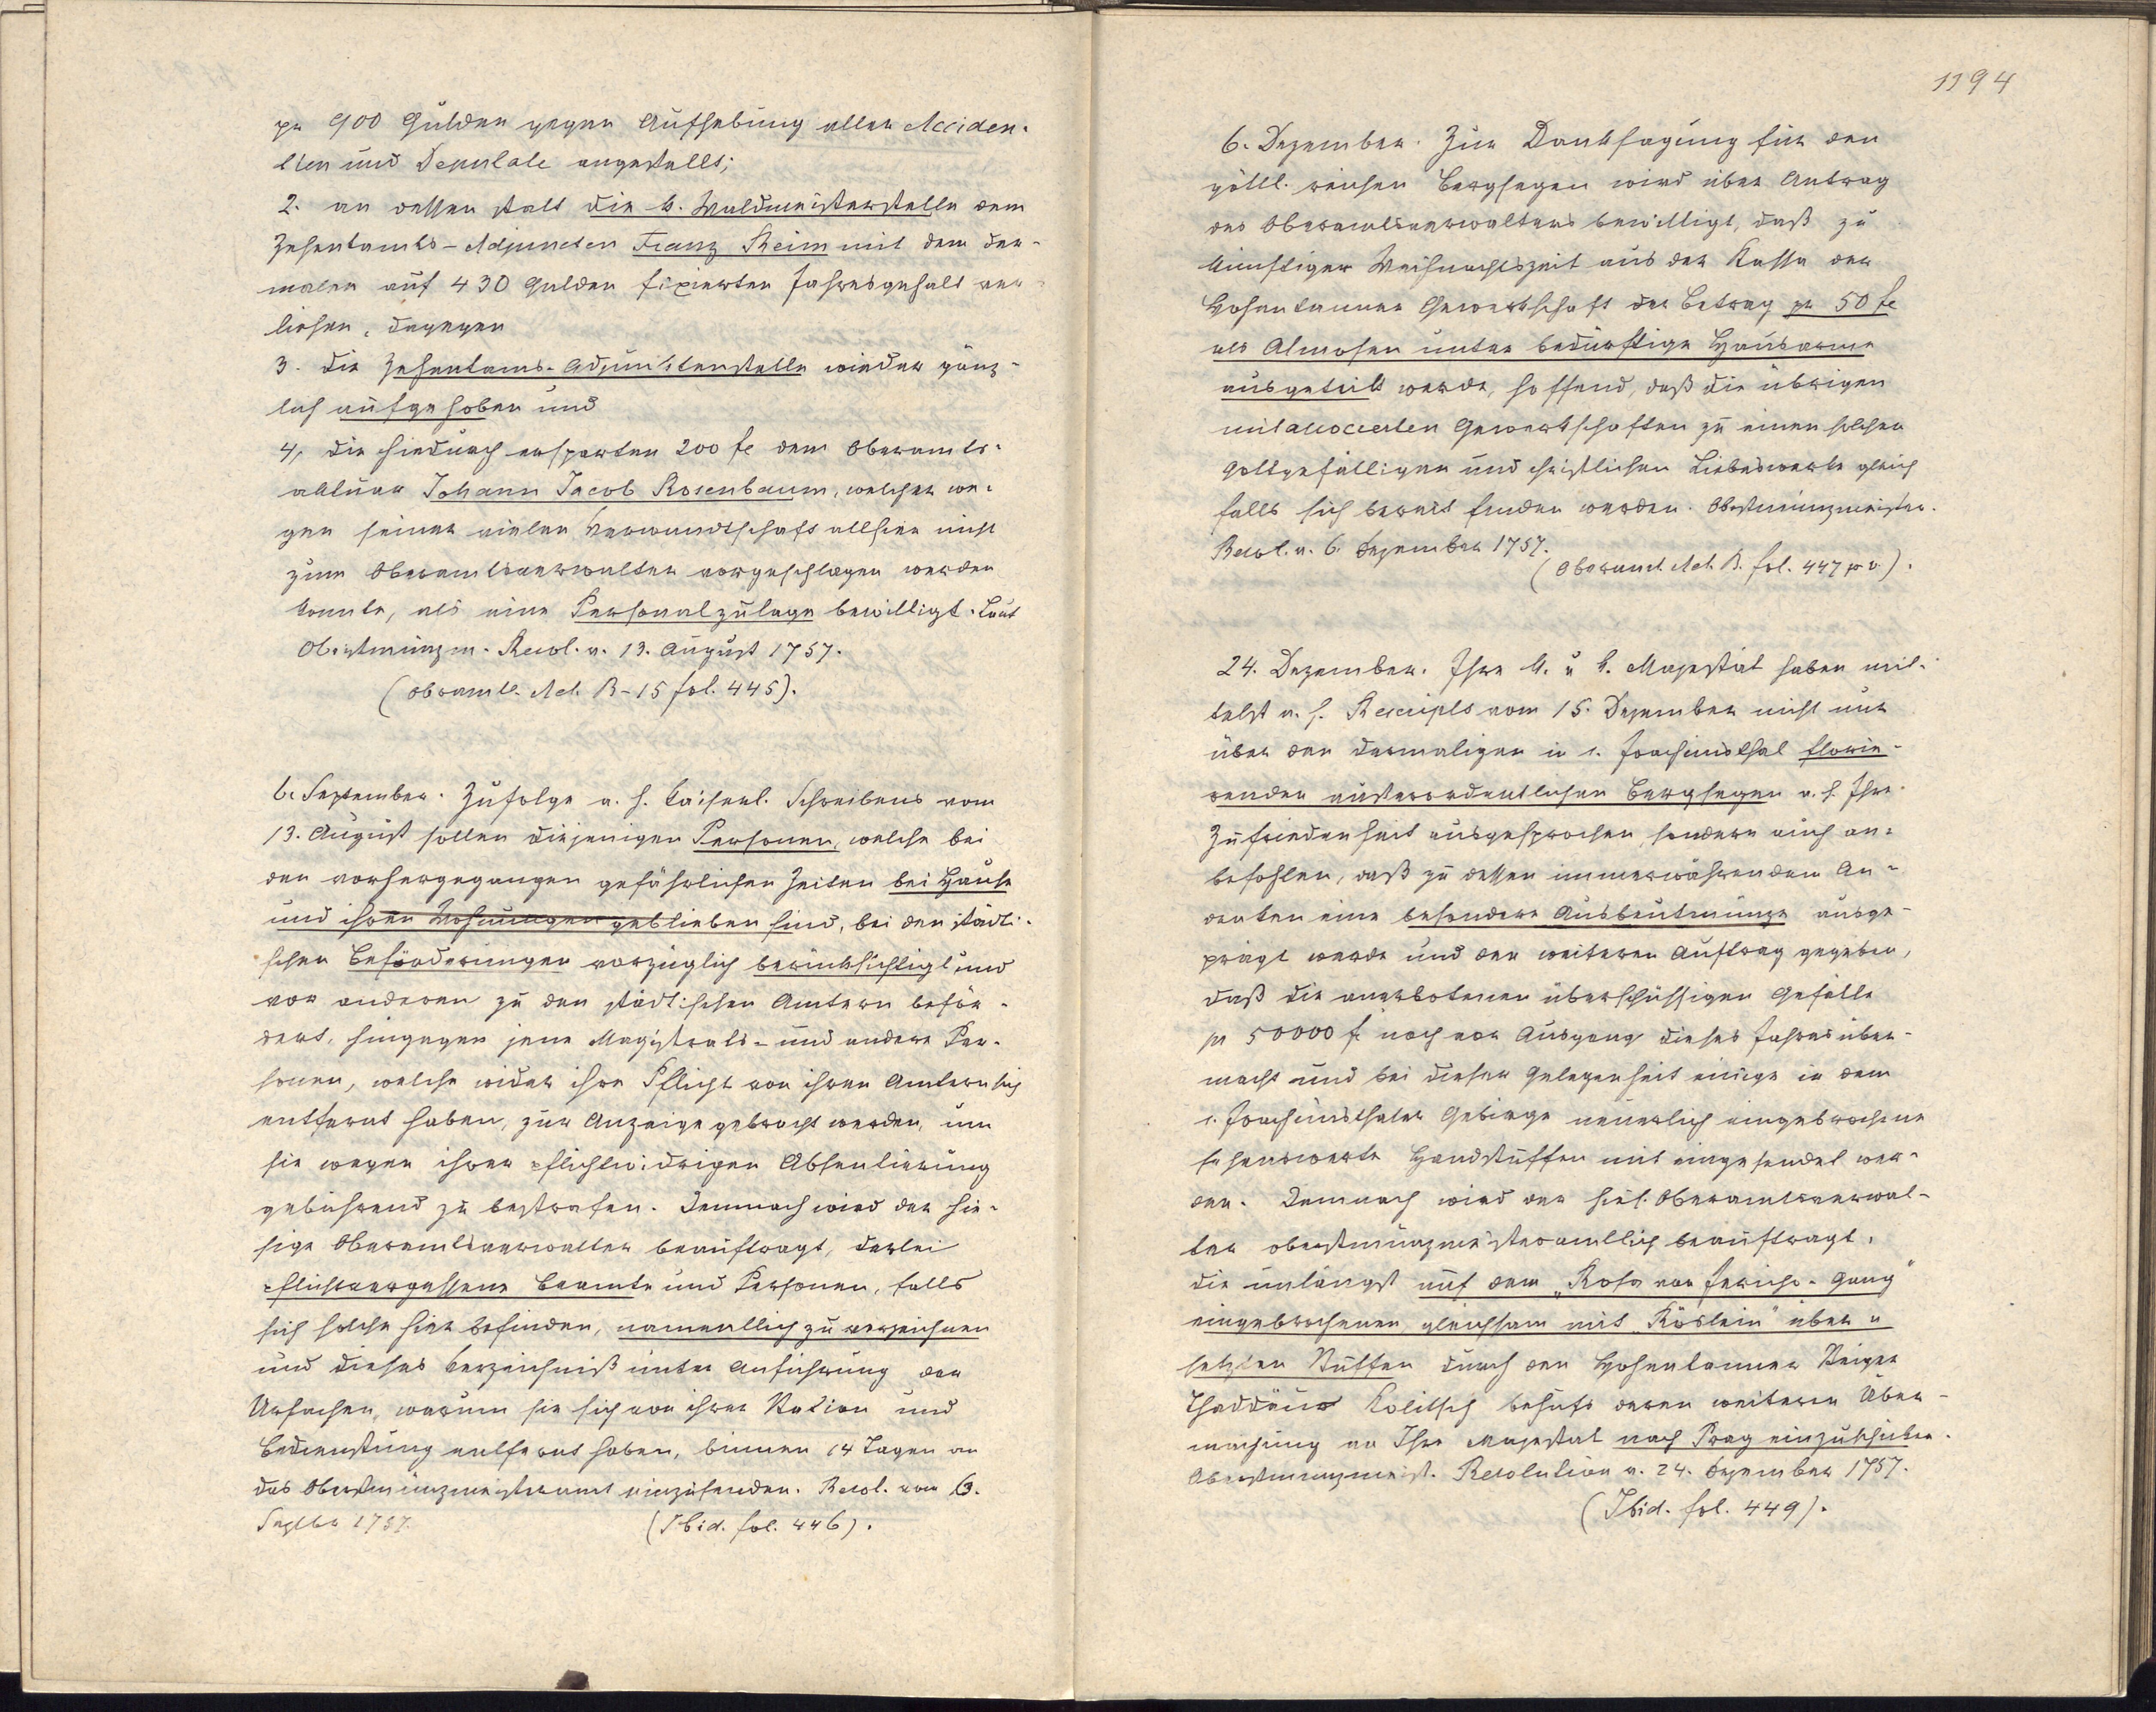 pr 900 Gulden gegen Aufhebung aller Acciden-
tien und Deputate angestellt;
2. an dessen statt die k. Waldmeisterstelle dem
Zehentamts-Adjuncten Franz Keim mit dem der-
malen auf 430 Gulden fixierten Jahresgehalt ver-
liehen, dagegen
3. die Zehentams-Adjunktenstelle wieder gänz-
lich aufgehoben und
4, die hiedurch ersparten 200 fl dem Oberamts-
aktuar Johann Jacob Rosenbaum, welcher we-
gen seiner vielen Verwandtschaft allhier nicht
zum Oberamtsverwalter vorgeschlagen werden
konnte, als eine Personalzulage bewilligt. Laut
Obristmünzm. Resol. v. 13. August 1757.
(Obramtl. Act. B-15 fol. 445).
6. September. Zufolge a. h. kaiserl. Schreibens vom
13. August sollen diejenigen Personen, welche bei
den vorhergegangen gefährlichen Zeiten bei Hause
und ihren Wohnungen geblieben sind, bei den städti-
schen Beförderungen vorzüglich berücksichtigt und
vor anderen zu den städtischen Ämtern beför-
dert, hingegen jene Magistrats- und andere Per-
sonen, welche wider ihre Pflicht von ihren Ämtern sich
entfernt haben, zur Anzeige gebracht werden, um
sie wegen ihrer pflichtwidrigen Absentierung
gebührend zu bestrafen. Demnach wird der hie-
sige Oberamtsverwalter beauftragt, derlei
pflichtvergessene Beamte und Personen, falls
sich solche hier befinden, namentlich zu verzeichnen
und dieses Verzeichniß unter Anführung der
Ursachen, warum sie sich von ihrer Station und
Bedienstung entfernt haben, binnen 14 Tagen an
das Oberstmünzmeisteramt einzusenden. Resol. vom 6.
Septber 1757. (Ibid. fol. 446).
1194
6. Dezember. Zur Danksagung für den
göttl. reichen Bergsegen wird über Antrag
des Oberamtsverwalters bewilligt, daß zu
künftiger Weihnachtszeit aus der Kassa der
Hohentanner Gewerkschaft der Betrag pr 50 fl
als Almosen unter bedürftige Hausarme
ausgeteilt werde, hoffend, daß die übrigen
mitassocierten Gewerkschaften zu einem solchen
gottgefälligen und christlichen Liebeswerke gleich
falls sich bereit finden werden. Obstmünzmeister.
Resol. v. 6. Dezember 1757.
(Oberamt. Act. B. fol. 447 pv).
24. Dezember. Ihre k. u k. Majestät haben mit-
telst a. h. Rescripts vom 15. Dezember nicht nur
über den dermaligen in s. Joachimsthal florie-
renden außerordentlichen Bergsegen a. h. Ihre
Zufriedenheit ausgesprochen, sondern auch an-
befohlen, daß zu dessen immerwährendem An-
denken eine besondere Ausbeutmünze ausge-
prägt werde und den weiteren Auftrag gegeben,
daß die anerbotenen überschüssigen Gefälle
pr 50000 f noch vor Ausgang dieses Jahres über-
macht und bei dieser Gelegenheit einige in dem
s. Joachimsthaler Gebirge neuerlich eingebrochene
sehenswerte Handstuffen mit eingesendet wer-
den. Demnach wird der hies. Oberamtsverwal-
ter oberstmünzmeisteramtlich beauftragt,
die unlängst auf dem „Rosa von Jericho-Gang"
eingebrochenen, gleichsam mit „Röslein" über u
setzten Stuffen durch den Hohentanner Steiger
Thaddäus Kolitsch behufs deren weiteren Über-
machung an Ihre Majestät nach Prag einzuschicken.
Oberstmünzmeist. Resolution v. 24. Dezember 1757.
(Ibid. fol. 449).